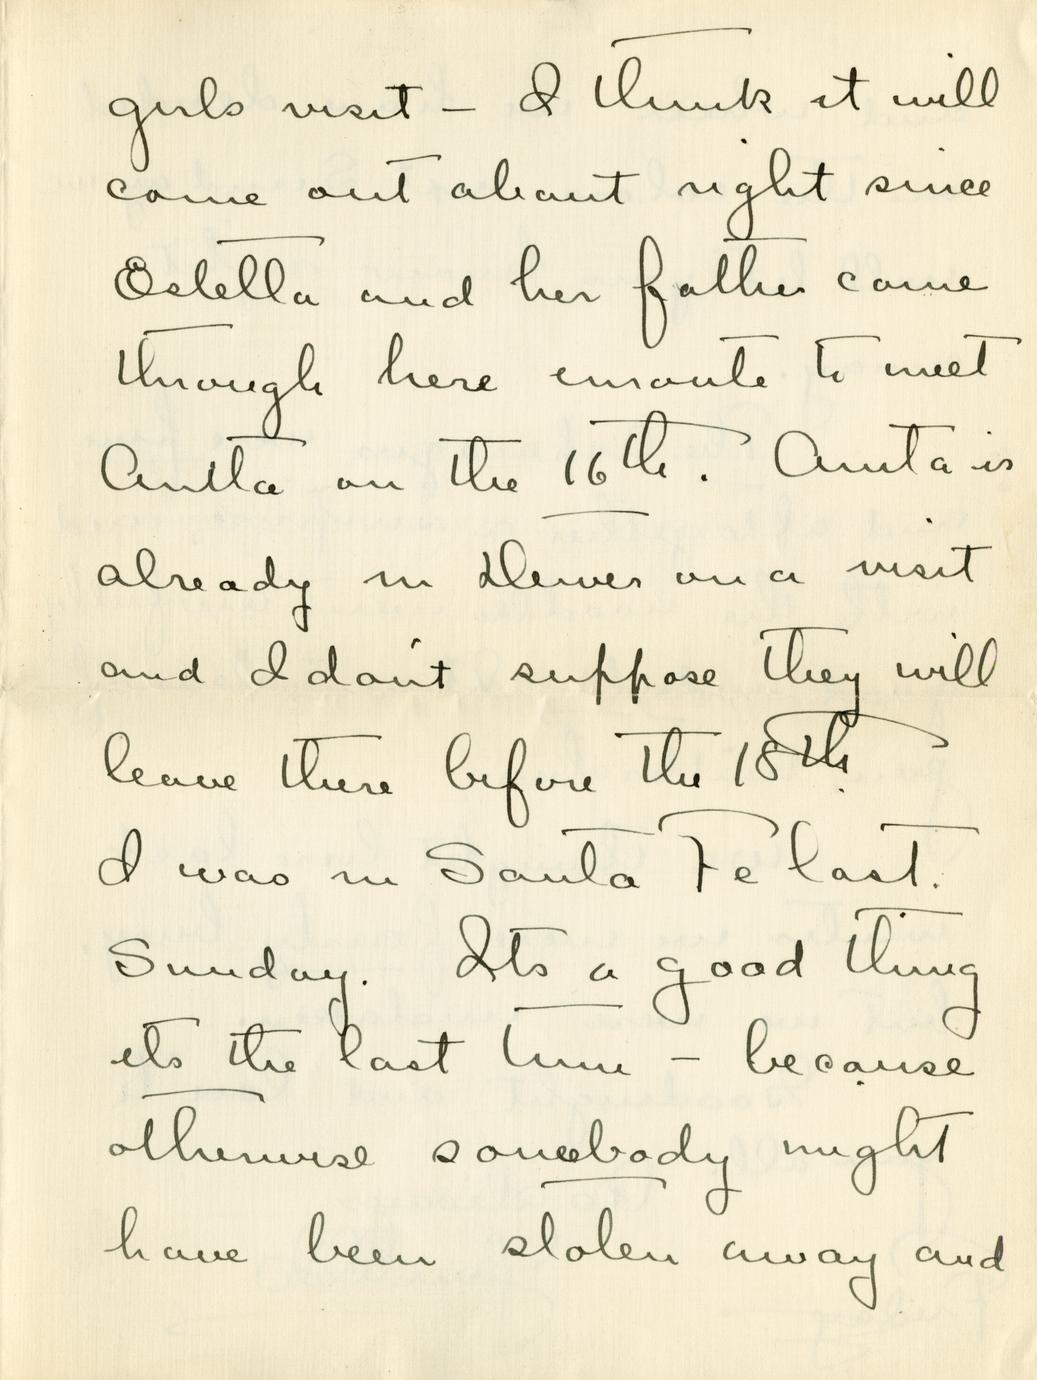 girls visit – I think it will
come out about right since
Estella and her father come
through here enroute to meet
Anita on the 16th. Anita is
already in Denver on a visit
and I don't suppose they will
leave there before the 18th.
I was in Santa Fe last.
Sunday. Its a good thing
its the last time – because
otherwise somebody might
have been stolen away and